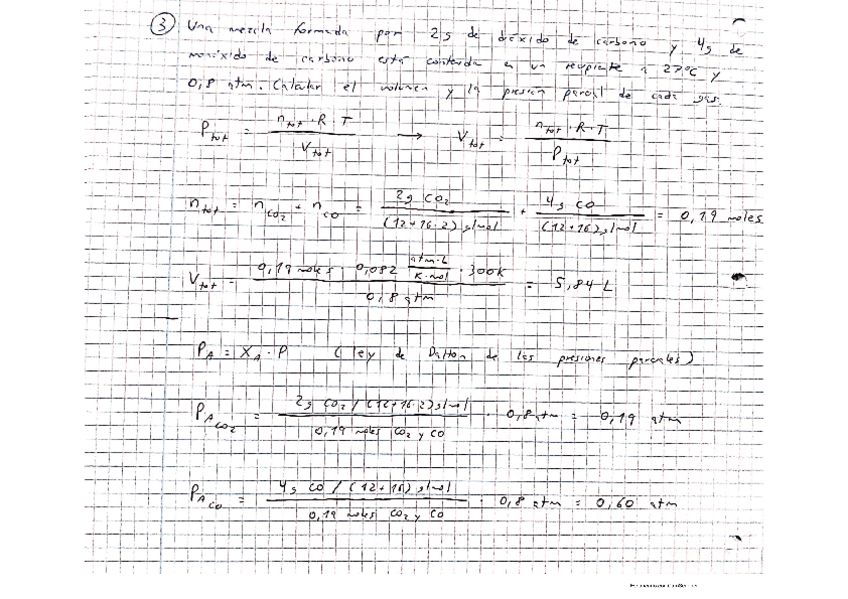 ③ Una mezcla formada por 2g de dióxido de carbono y 4g de
monóxido de carbono está contenida en un recipiente a 27ºC y
0,8 atm. Calcular el volumen y la presión parcial de cada gas.
P_tot = n_tot · R · T / V_tot → V_tot = n_tot · R · T / P_tot
n_tot = n_CO₂ + n_CO = 2g CO₂ / (12+16·2) g/mol + 4g CO / (12+16) g/mol = 0,19 moles
V_tot = 0,19 moles · 0,082 atm·L / K·mol · 300K / 0,8 atm = 5,84 L
P_A = X_A · P (Ley de Dalton de las presiones parciales)
P_A CO₂ = 2g CO₂ / (12+16·2) g/mol / 0,19 moles CO₂ y CO · 0,8 atm = 0,19 atm
P_A CO = 4g CO / (12+16) g/mol / 0,19 moles CO₂ y CO · 0,8 atm = 0,60 atm